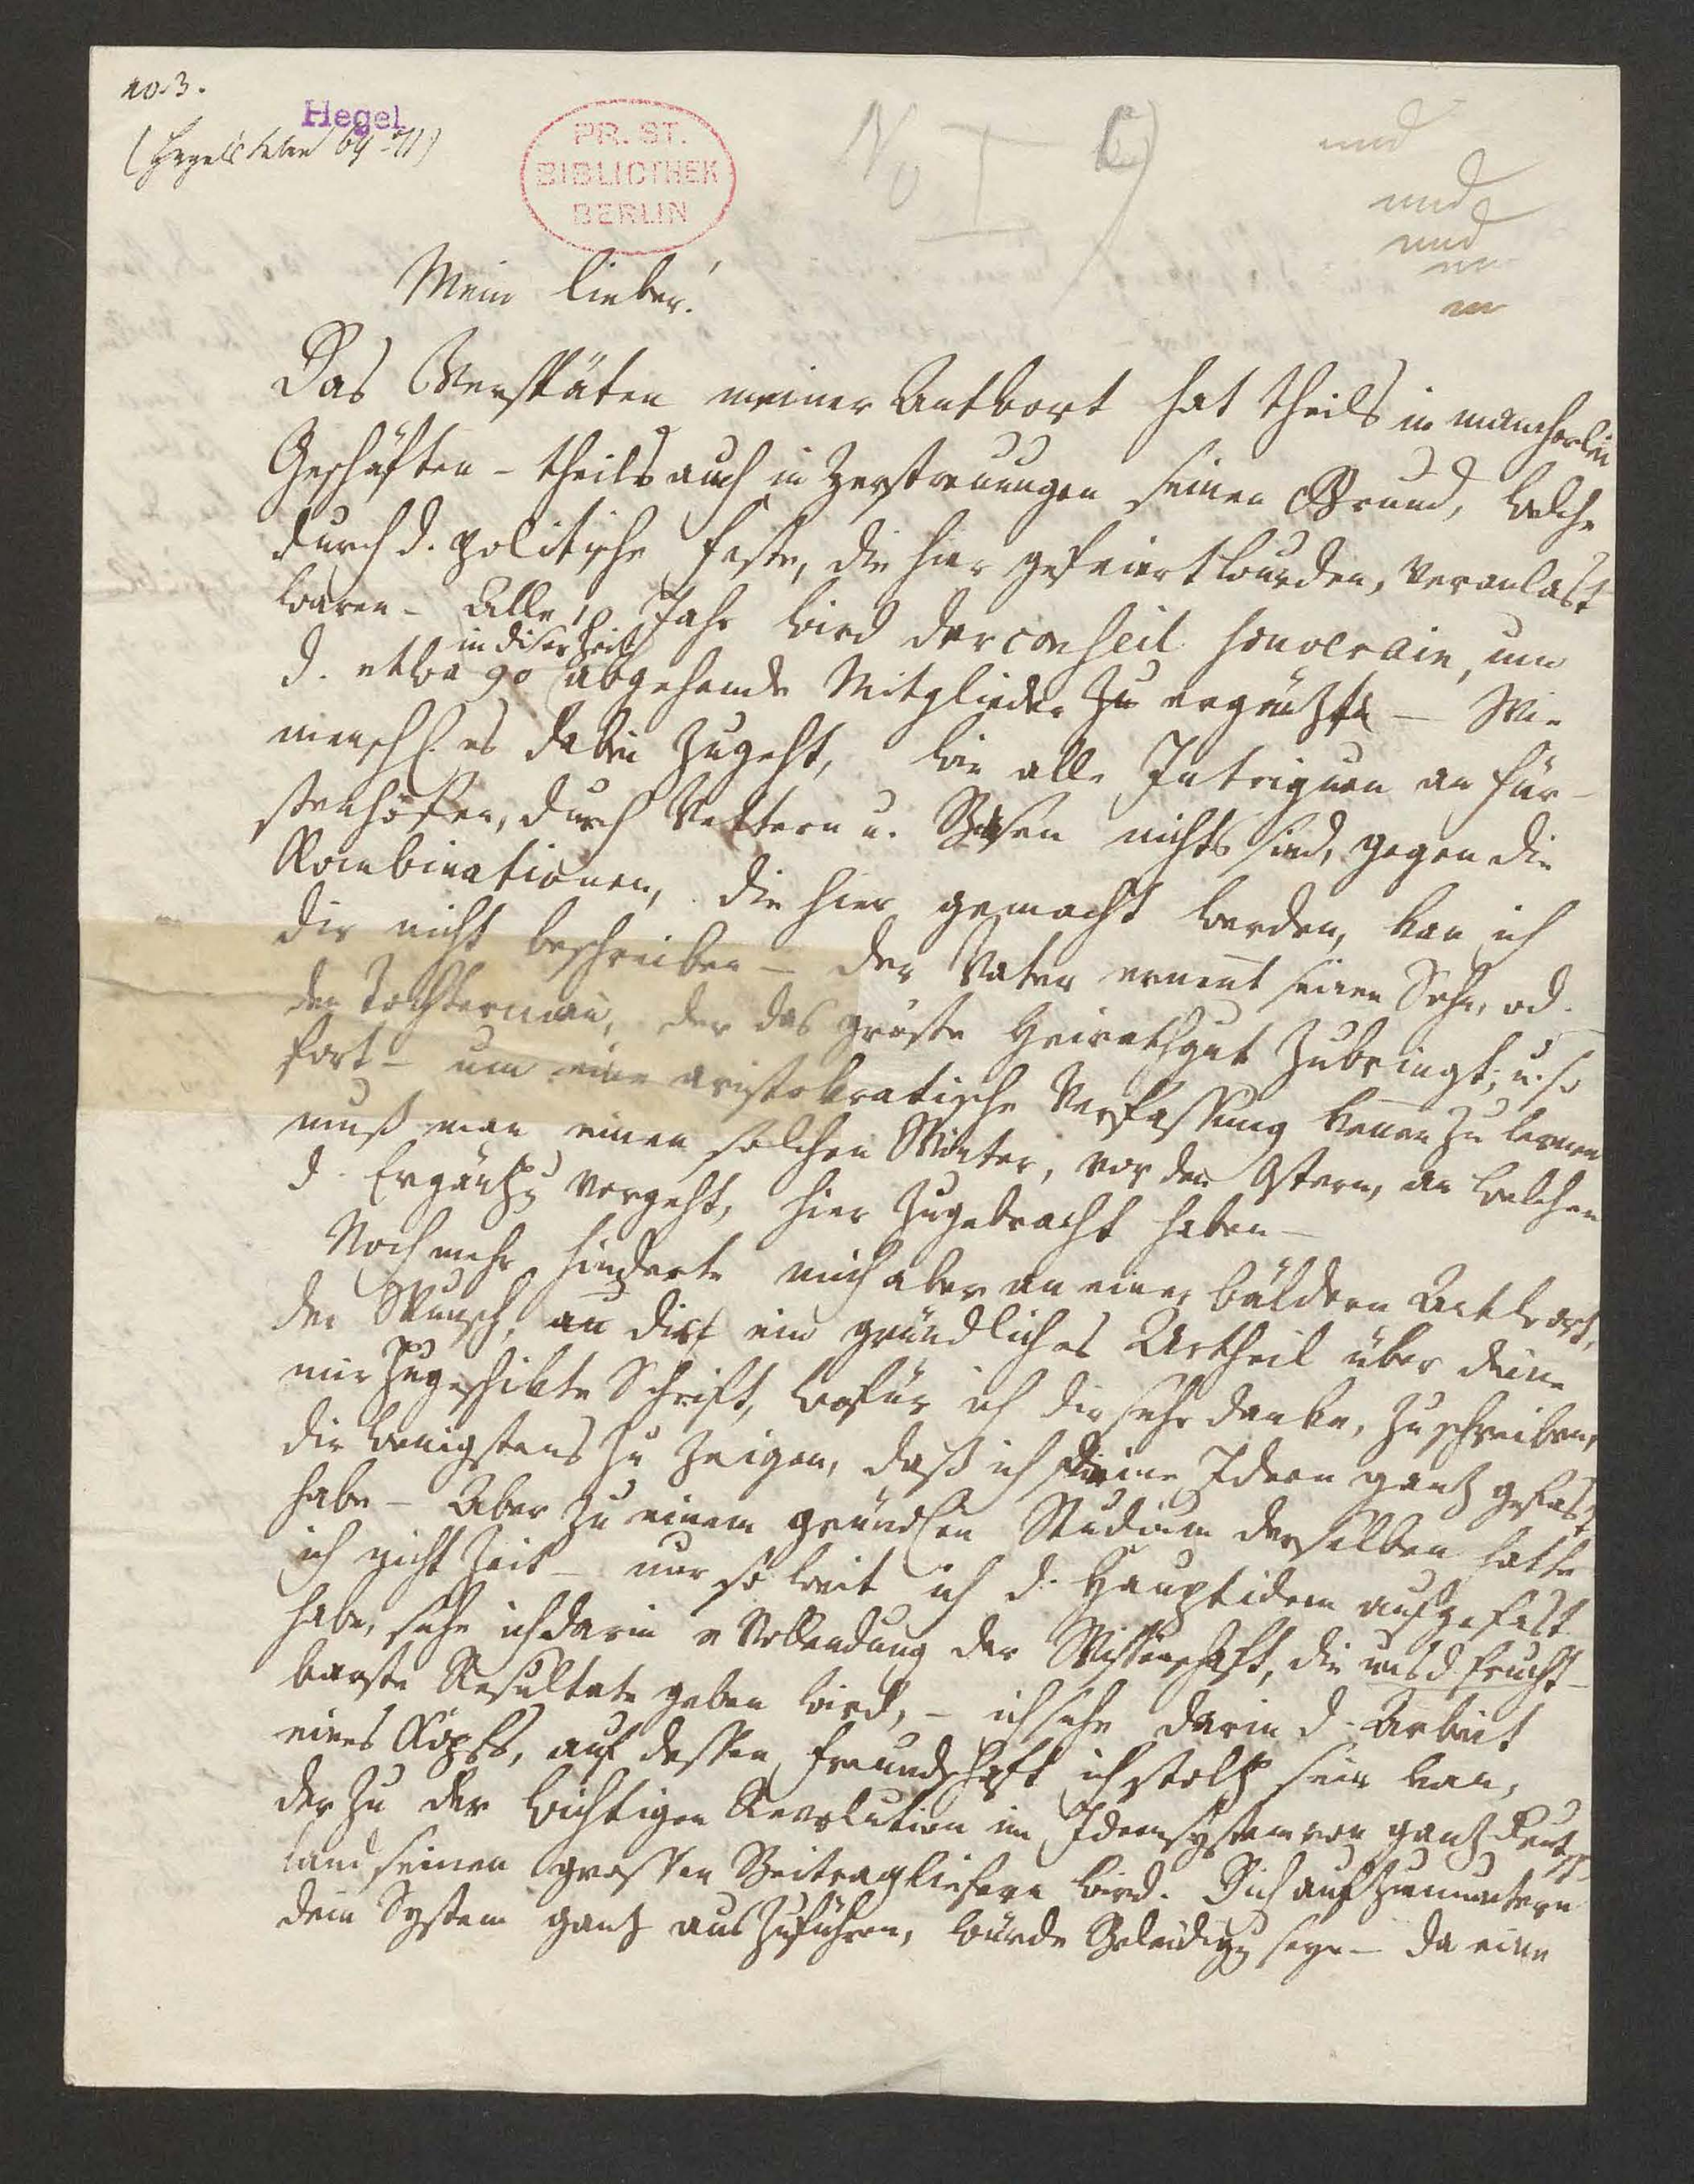 no 3.
Hegel
(Hegels Leben 69-71)
PR. ST.
BIBLIOTHEK
BERLIN
No I
und
und
und
Mein Lieber!
Das Verspäten meiner Antwort hat theils in mancherlei
Geschäften – theils auch in Zerstreuungen seinen Grund, welche
durch d. politische Feste, die hier gefeiert wurden, veranlast
waren – Alle 10 Jahr wird der conseil souverain, um
in diser Zeit
d. etwa 90 abgehende Mitglieder zu ergäntzt – Wie
menschl. es dabei zugeht, wie alle Intriguen an Für-
stenhöfen, durch Vettern u. Basen nichts sind, gegen die
Kombinationen, die hier gemacht werden, kan ich
dir nicht beschreiben – der Vater ernent seinen Sohn, od.
den Tochterman, der das gröste Heirathgut zubringt, u. so
fort – um eine aristokratische Verfassung kennen zu lernen
muß man einen solchen Winter, vor den Ostern, an welchen
d. Ergäntzg vorgeht, hier zugebracht haben –
Noch mehr hinderte mich aber an einer bäldern Antwort,
der Wunsch, an dich ein gründliches Urtheil über deine
mir zugeschikte Schrift, wofür ich dir sehr danke, zu schreiben,
dir wenigstens zu zeigen, daß ich deine Ideen gantz gefast
habe – Aber zu einem gründlen Studium derselben hatte
ich nicht Zeit – nur so weit ich d. Hauptideen aufgefast
habe, sehe ich darin e Vollendung der Wissenschaft, die uns d. frucht-
barste Resultate geben wird, – ich sehe darin d. Arbeit
eines Kopfs, auf dessen Freundschaft ich stoltz sein kan,
der zu der wichtigen Revolution im Ideensystem von gantz Deutsch-
land seinen grossen Beitrag liefern wird. Dich aufzumuntern
dein System gantz auszuführen, würde Beleidigg seyn – da eine